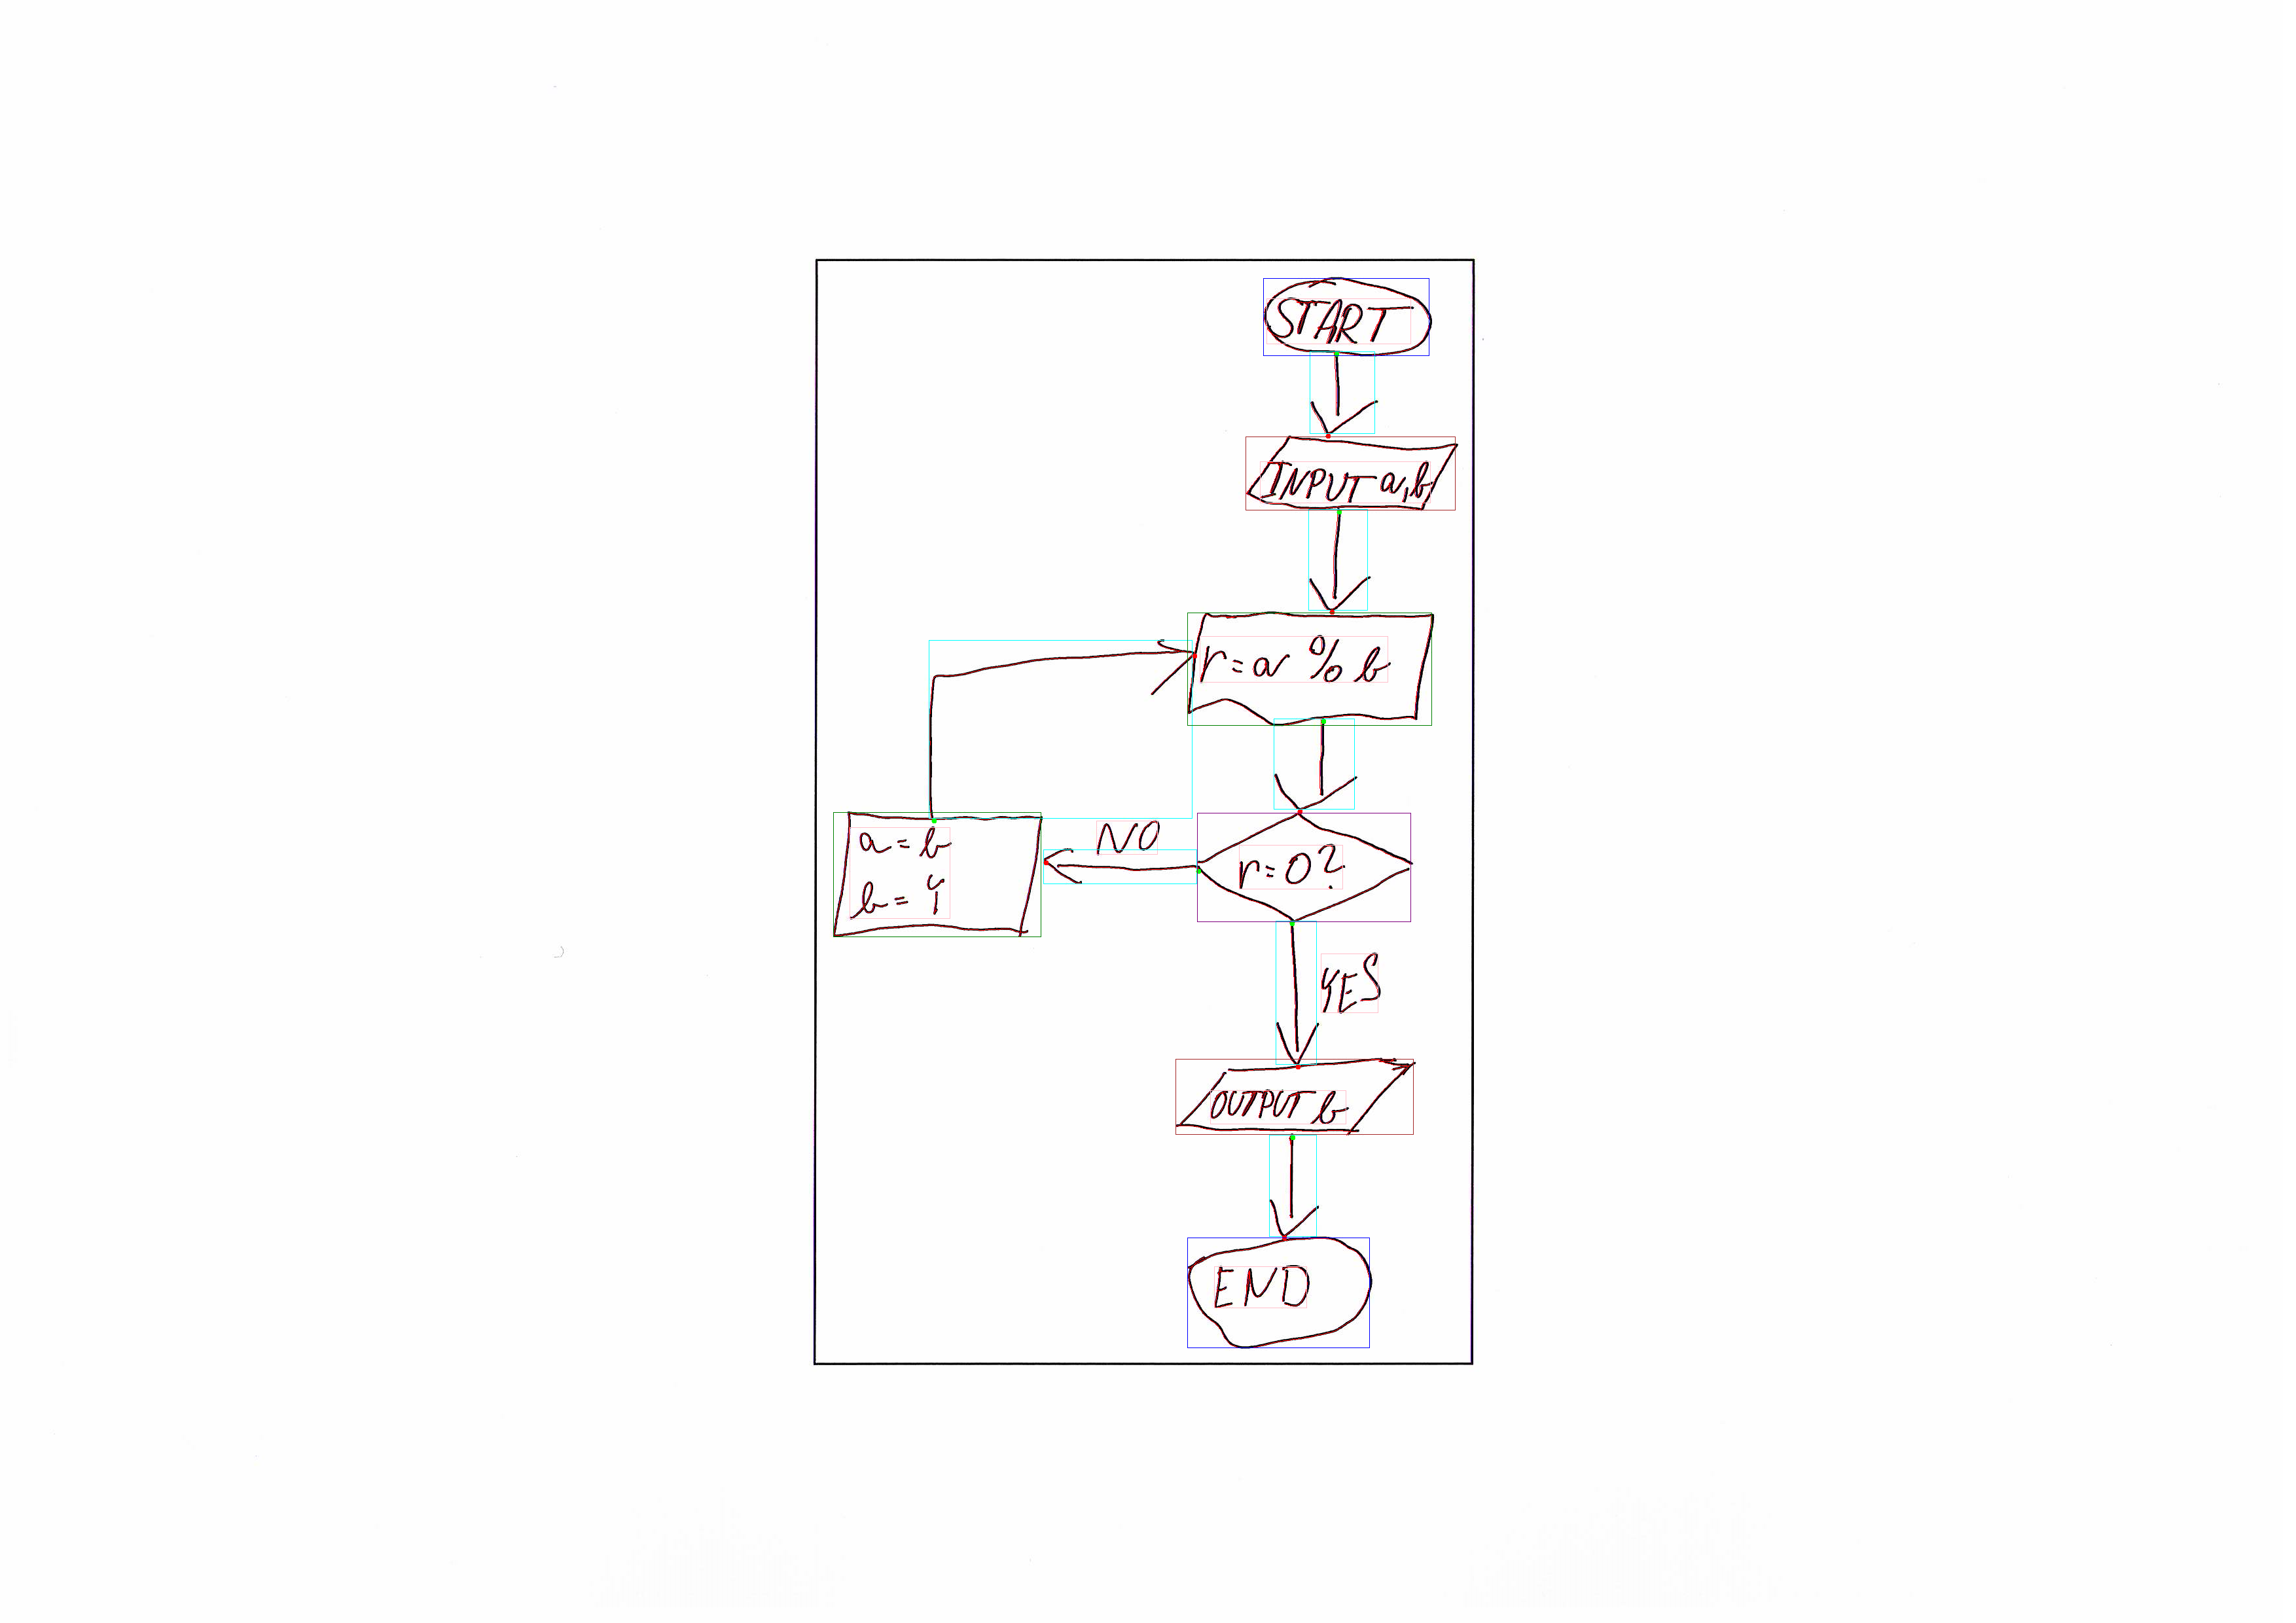 START
INPUT a,b
r=a % b
NO
r=0?
a=b
b=r
YES
OUTPUT b
END